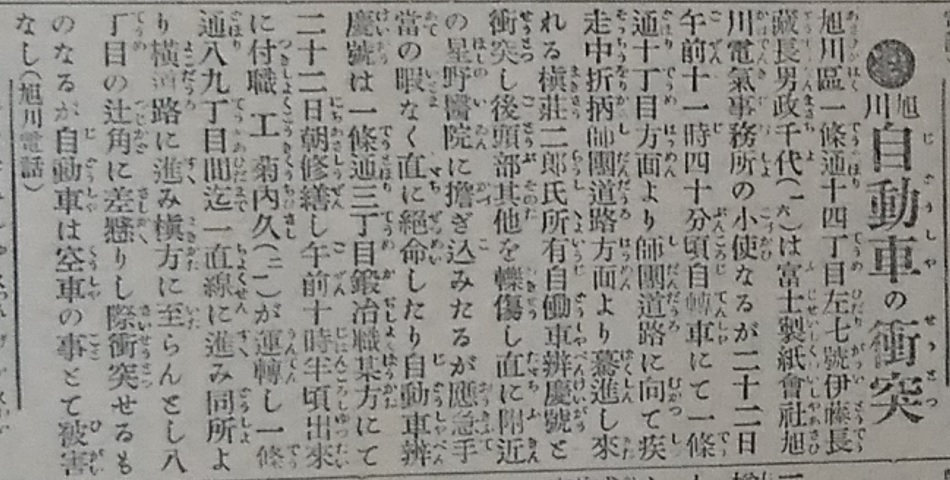 ●旭川自動車の衝突
旭川區一條通十四丁目左七號伊藤長
藏長男政千代(一六)は富士製紙會社旭
川電氣事務所の小使なるが二十二日
午前十一時四十分頃自轉車にて一條
通十丁目方面より師團道路に向て疾
走中折柄師團道路方面より驀進し來
れる槇莊二郎氏所有自働車辨慶號と
衝突し後頭部其他を轢傷し直に附近
の星野醫院に擔ぎ込みたるが應急手
當の暇なく直に絶命したり自動車辨
慶號は一條通三丁目鍛冶職某方にて
二十二日朝修繕し午前十時半頃出來
に付職工菊内久(二一)が運轉し一條
通八九丁目間迄一直線に進み同所よ
り横道路に進み槇方に至らんとし八
丁目の辻角に差懸りし際衝突せるも
のなるが自動車は空車の事とて被害
なし(旭川電話)